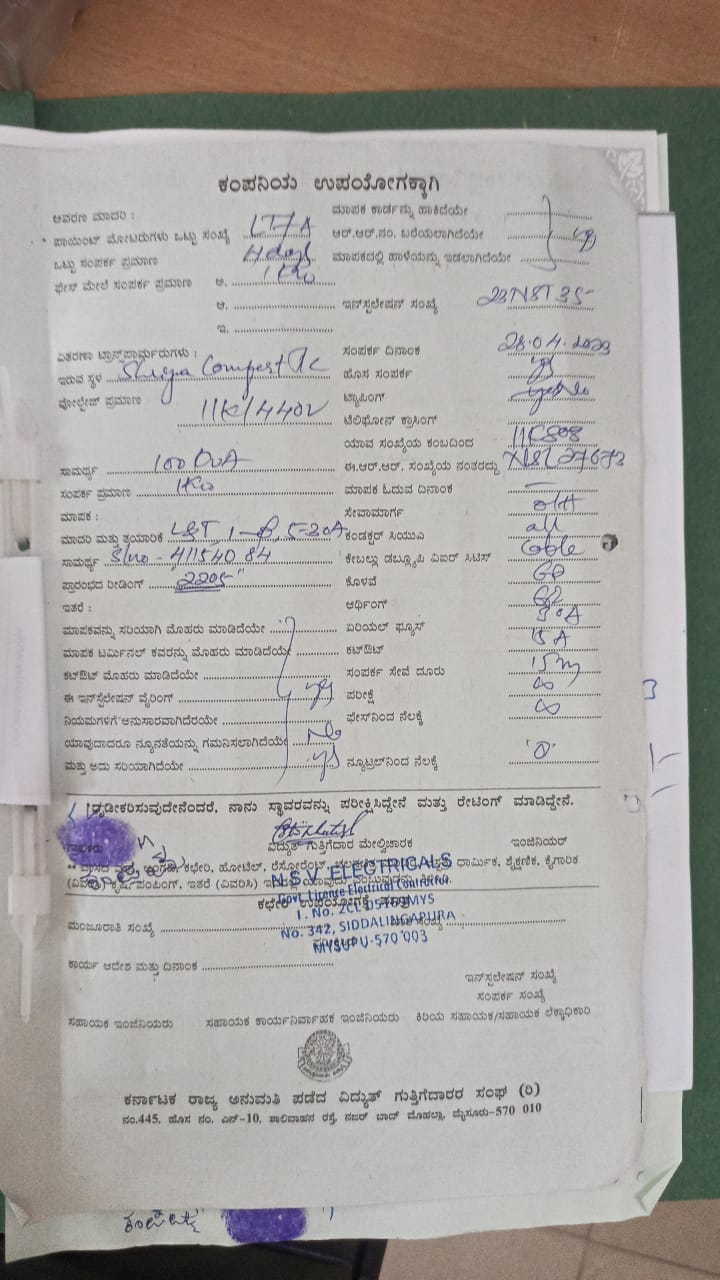 ಕಂಪನಿಯ ಉಪಯೋಗಕ್ಕಾಗಿ
ಆವರಣ ಮಾದರಿ :
ಮಾಪಕ ಕಾರ್ಡನ್ನು ಹಾಕಿದೆಯೇ
ಪಾಯಿಂಟ್ ಮೋಟರುಗಳು ಒಟ್ಟು ಸಂಖ್ಯೆ
ಆರ್.ಆರ್.ನಂ. ಬರೆಯಲಾಗಿದೆಯೇ
ಒಟ್ಟು ಸಂಪರ್ಕ ಪ್ರಮಾಣ
ಮಾಪಕದಲ್ಲಿ ಹಾಳೆಯನ್ನು ಇಡಲಾಗಿದೆಯೇ
ಫೇಸ್ ಮೇಲೆ ಸಂಪರ್ಕ ಪ್ರಮಾಣ ಅ. 1KW
ಆ.
ಇನ್ಸ್ಟಲೇಷನ್ ಸಂಖ್ಯೆ
ಇ.
ವಿತರಣಾ ಟ್ರಾನ್ಸ್‌ಫಾರ್ಮರುಗಳು :
ಸಂಪರ್ಕ ದಿನಾಂಕ 28.04.2023
ಇರುವ ಸ್ಥಳ
ಹೊಸ ಸಂಪರ್ಕ ys
ವೋಲ್ಟೇಜ್ ಪ್ರಮಾಣ 11K/440V
ಟ್ಯಾಪಿಂಗ್
ಟೆಲಿಫೋನ್ ಕ್ರಾಸಿಂಗ್
ಯಾವ ಸಂಖ್ಯೆಯ ಕಂಬದಿಂದ
ಸಾಮರ್ಥ್ಯ 100 KVA
ಈ.ಆರ್.ಆರ್. ಸಂಖ್ಯೆಯ ನಂತರದ್ದು
ಸಂಪರ್ಕ ಪ್ರಮಾಣ 1KW
ಮಾಪಕ ಓದುವ ದಿನಾಂಕ –
ಮಾಪಕ :
ಸೇವಾಮಾರ್ಗ
ಮಾದರಿ ಮತ್ತು ತಯಾರಿಕೆ L&T, 1-ϕ, 5-30A
ಕಂಡಕ್ಟರ್ ಸಿಯುಎ all
ಸಾಮರ್ಥ್ಯ S/no - 41154084
ಕೇಬಲ್ಲು ಡಬ್ಲ್ಯೂಪಿ ಎಐರ್ ಸಿಟಿಸ್ Cable
ಪ್ರಾರಂಭದ ರೀಡಿಂಗ್
ಕೊಳವೆ GP
ಇತರೆ :
ಆರ್ಥಿಂಗ್
ಮಾಪಕವನ್ನು ಸರಿಯಾಗಿ ಮೊಹರು ಮಾಡಿದೆಯೇ
ಏರಿಯಲ್ ಫ್ಯೂಸ್ 30A
ಮಾಪಕ ಟರ್ಮಿನಲ್ ಕವರನ್ನು ಮೊಹರು ಮಾಡಿದೆಯೇ
ಕಟ್‌ಔಟ್ 15A
ಕಟ್‌ಔಟ್ ಮೊಹರು ಮಾಡಿದೆಯೇ
ಸಂಪರ್ಕ ಸೇವೆ ದೂರು 15m
ಈ ಇನ್‌ಸ್ಟಲೇಷನ್ ವೈರಿಂಗ್ ys
ಪರೀಕ್ಷೆ ∞
ನಿಯಮಗಳಿಗೆ ಅನುಸಾರವಾಗಿದೆರಯೇ
ಫೇಸ್‌ನಿಂದ ನೆಲಕ್ಕೆ ∞
ಯಾವುದಾದರೂ ನ್ಯೂನತೆಯನ್ನು ಗಮನಿಸಲಾಗಿದೆಯೇ No
ಮತ್ತು ಅದು ಸರಿಯಾಗಿದೆಯೇ ys
ನ್ಯೂಟ್ರಲ್‌ನಿಂದ ನೆಲಕ್ಕೆ '0'
ದೃಢೀಕರಿಸುವುದೇನೆಂದರೆ, ನಾನು ಸ್ಥಾವರವನ್ನು ಪರೀಕ್ಷಿಸಿದ್ದೇನೆ ಮತ್ತು ರೇಟಿಂಗ್ ಮಾಡಿದ್ದೇನೆ.
ವಿದ್ಯುತ್ ಗುತ್ತಿಗೆದಾರ ಮೇಲ್ವಿಚಾರಕ
ಇಂಜಿನಿಯರ್
ಕಛೇರಿ, ಹೋಟೆಲ್, ರೆಸ್ಟೋರೆಂಟ್, ಧಾರ್ಮಿಕ, ಶೈಕ್ಷಣಿಕ, ಕೈಗಾರಿಕ
N.S.V. ELECTRICALS
Govt. License Electrical Contractor
No. 342, SIDDALINGAPURA
MYSURU-570 003
ಮಂಜೂರಾತಿ ಸಂಖ್ಯೆ
ಕಾರ್ಯ ಆದೇಶ ಮತ್ತು ದಿನಾಂಕ
ಇನ್‌ಸ್ಟಲೇಷನ್ ಸಂಖ್ಯೆ
ಸಂಪರ್ಕ ಸಂಖ್ಯೆ
ಸಹಾಯಕ ಇಂಜಿನಿಯರು ಸಹಾಯಕ ಕಾರ್ಯನಿರ್ವಾಹಕ ಇಂಜಿನಿಯರು ಕಿರಿಯ ಸಹಾಯಕ/ಸಹಾಯಕ ಲೆಕ್ಕಾಧಿಕಾರಿ
ಕರ್ನಾಟಕ ರಾಜ್ಯ ಅನುಮತಿ ಪಡೆದ ವಿದ್ಯುತ್ ಗುತ್ತಿಗೆದಾರರ ಸಂಘ (ರಿ)
ನಂ.445, ಹೊಸ ನಂ. ಎನ್-10, ಶಾಲಿವಾಹನ ರಸ್ತೆ, ನಜರ್ ಬಾದ್ ಮೊಹಲ್ಲಾ, ಮೈಸೂರು-570 010